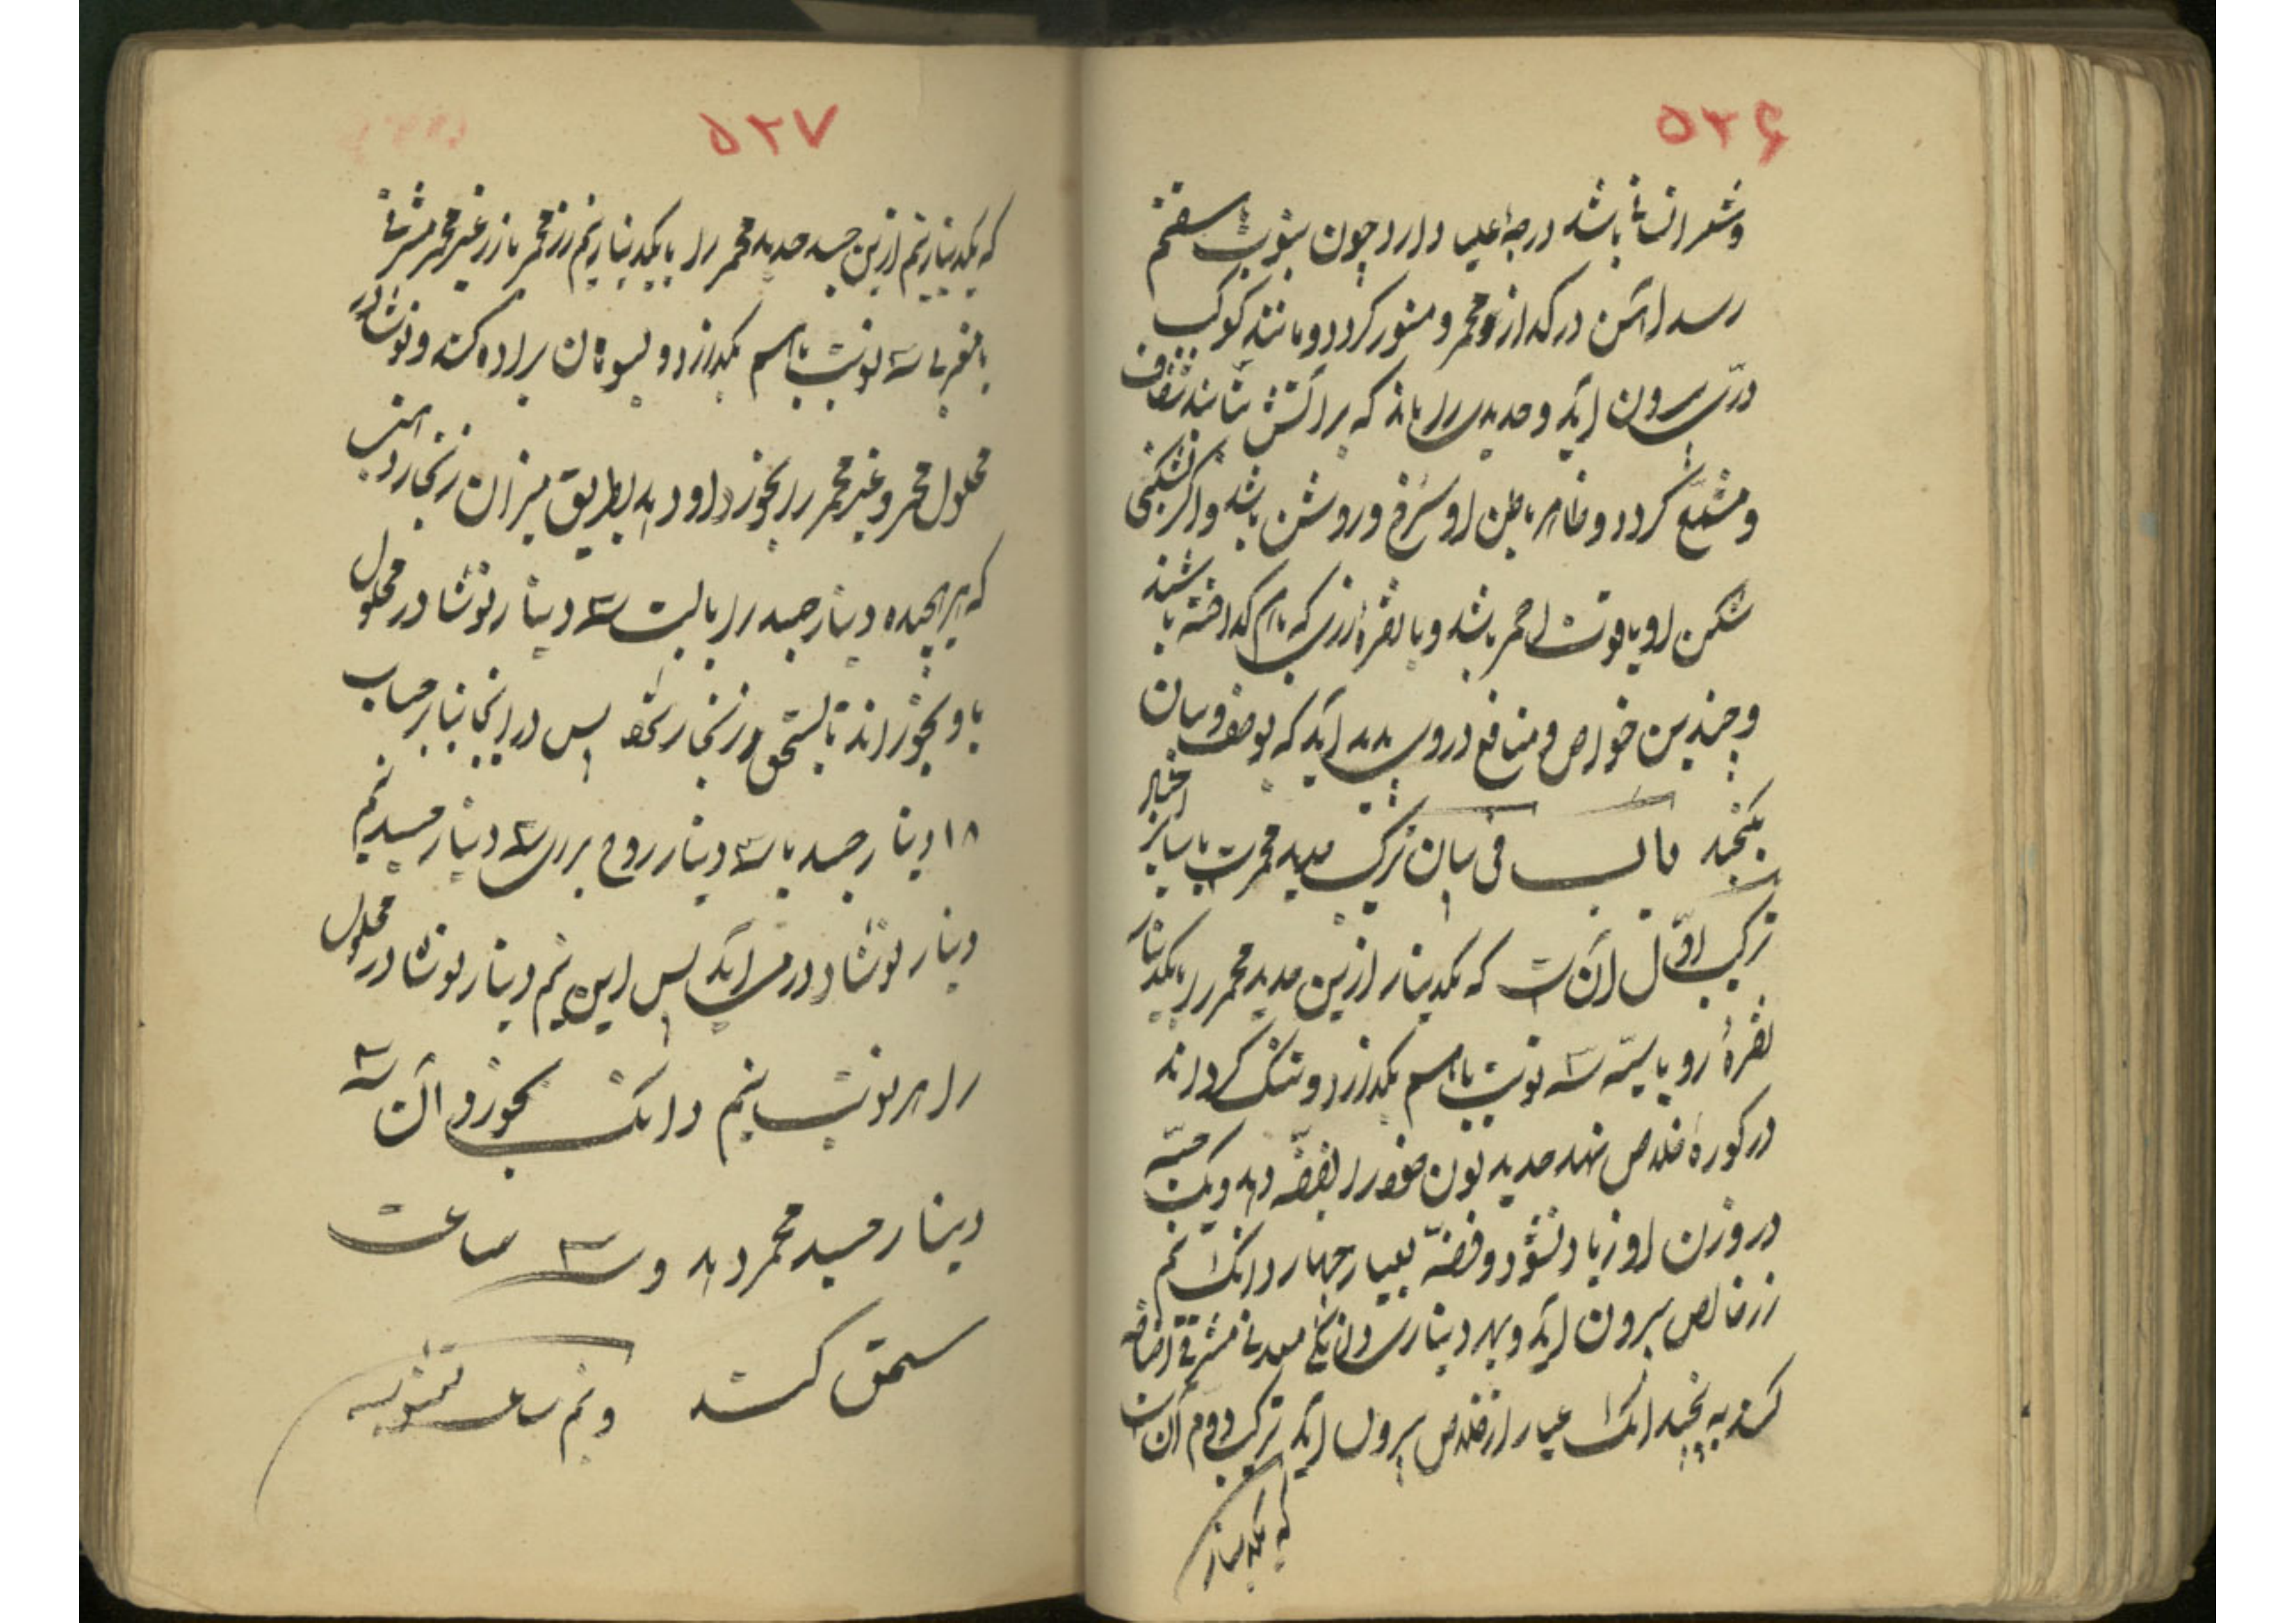 ۵۲۶
و شعر انسانی باشد درجهٔ اعلی دارد چون بنوبت هفتم
رسد آهن در گداز محمر و منور گردد و مانند کوکب
درّی بیرون آید و حدیدی را ماند که بر آتش تابند شفاف
و مشعشع گردد و ظاهر باطن او سرخ و روشن باشد و اگر بشکنی
شکن او یاقوت احمر باشد و با نقره و زری که با هم گداخته باشند
و چندین خواص و منافع در وی پدید آید که بوصف و بیان
نگنجد فی بیان ترکیب حدید محمرست با سایر اجساد
ترکیب اوّل آن است که یکدینار ازین حدید محمر را با یکدینار
نقرهٔ سه نوبت با هم بگدازد و تنک گرداند
در کورهٔ خلاص نهد حدید لون خود را بفضّه دهد و یک حبّه
در وزن او زیاد نشود و فضّه بعیار چهار دانگ نیم
زر خالص بیرون آید و بهر دینار معدنی مشرقی اضافه
کند به پنجدانگ عیار از خلاص بیرون آید ترکیب دوم آن است
که یکدینار
۵۲۷
که یکدینار نیم ازین جسد حدید محمر را با یکدینار نیم زر محمر یا زر غیر محمر مشرقی
یا مغربی سه نوبت با هم بگدازد و بسوهان براده کند و نوشادر
محلول محمر و غیر محمر را بخورد او دهد بطریق میزان زنجار ذهب
که هر هجده دینار جسد را بالیست سه دینار نوشادر محلول
باو بخوراند تا بسحق زنجار شود پس در اینجا بنابر حساب
۱۸ دینار جسد با سه دینار روح برای سه دینار جسد نیم
دینار نوشادر می آید پس این نیم دینار نوشادر محلول
را هر نوبت نیم دانگ بخورد آن سه
دینار جسد محمر دهد و سه ساعت
سحق کند و نیم ساعت تشویه